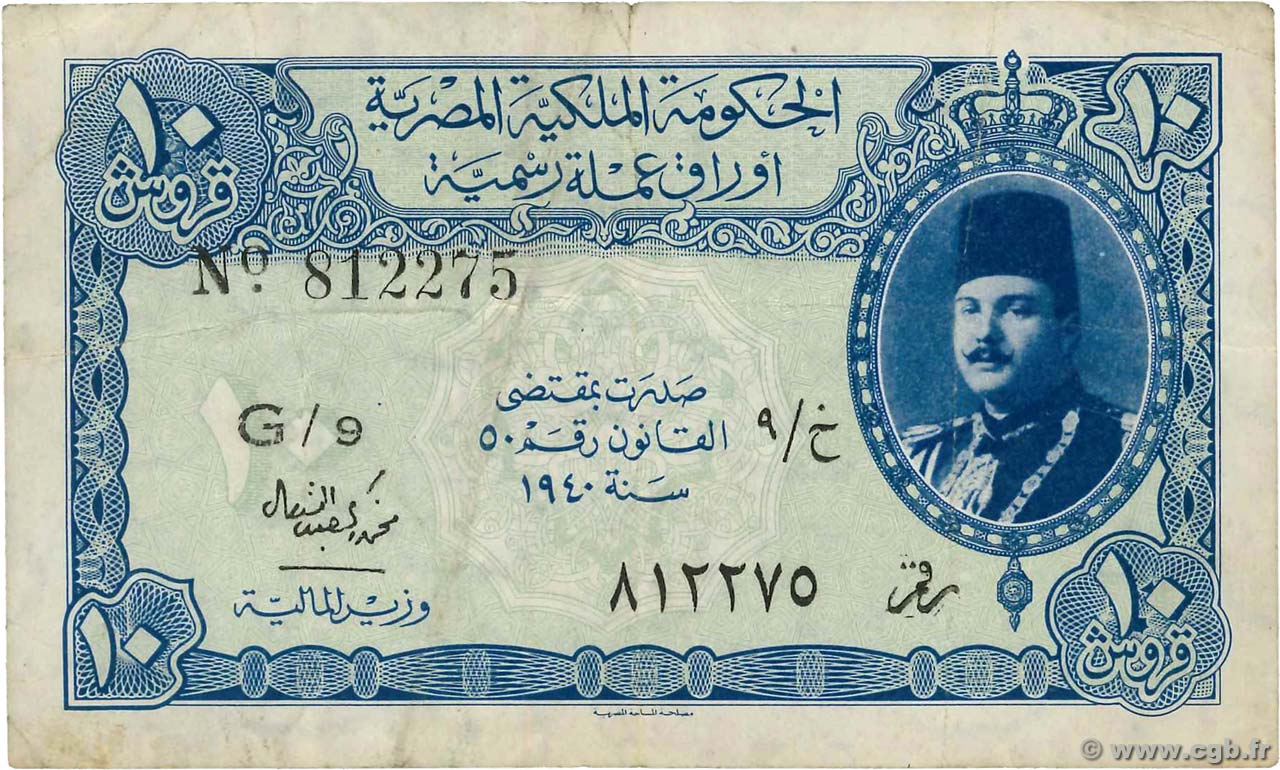 الحكومة الملكية المصرية
أوراق عملة رسمية
١٠
١٠ قروش
Nº 812275
صدرت بمقتضى
القانون رقم ٥٠
سنة ١٩٤٠
خ/٩
G/9
وزير المالية
رقم ٨١٢٢٧٥
١٠ قروش
١٠
١٠
مصلحة المساحة المصرية
© www.cgb.fr